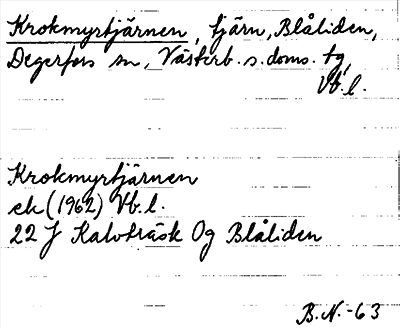 Krokmyrtjärnen, tjärn, Blåliden,
Degerfors sn, Västerb. s. doms. tg,
Vb. l.
Krokmyrtjärnen
ek (1962) Vb. l.
22 J Kalvträsk Og Blåliden
B.N.-63